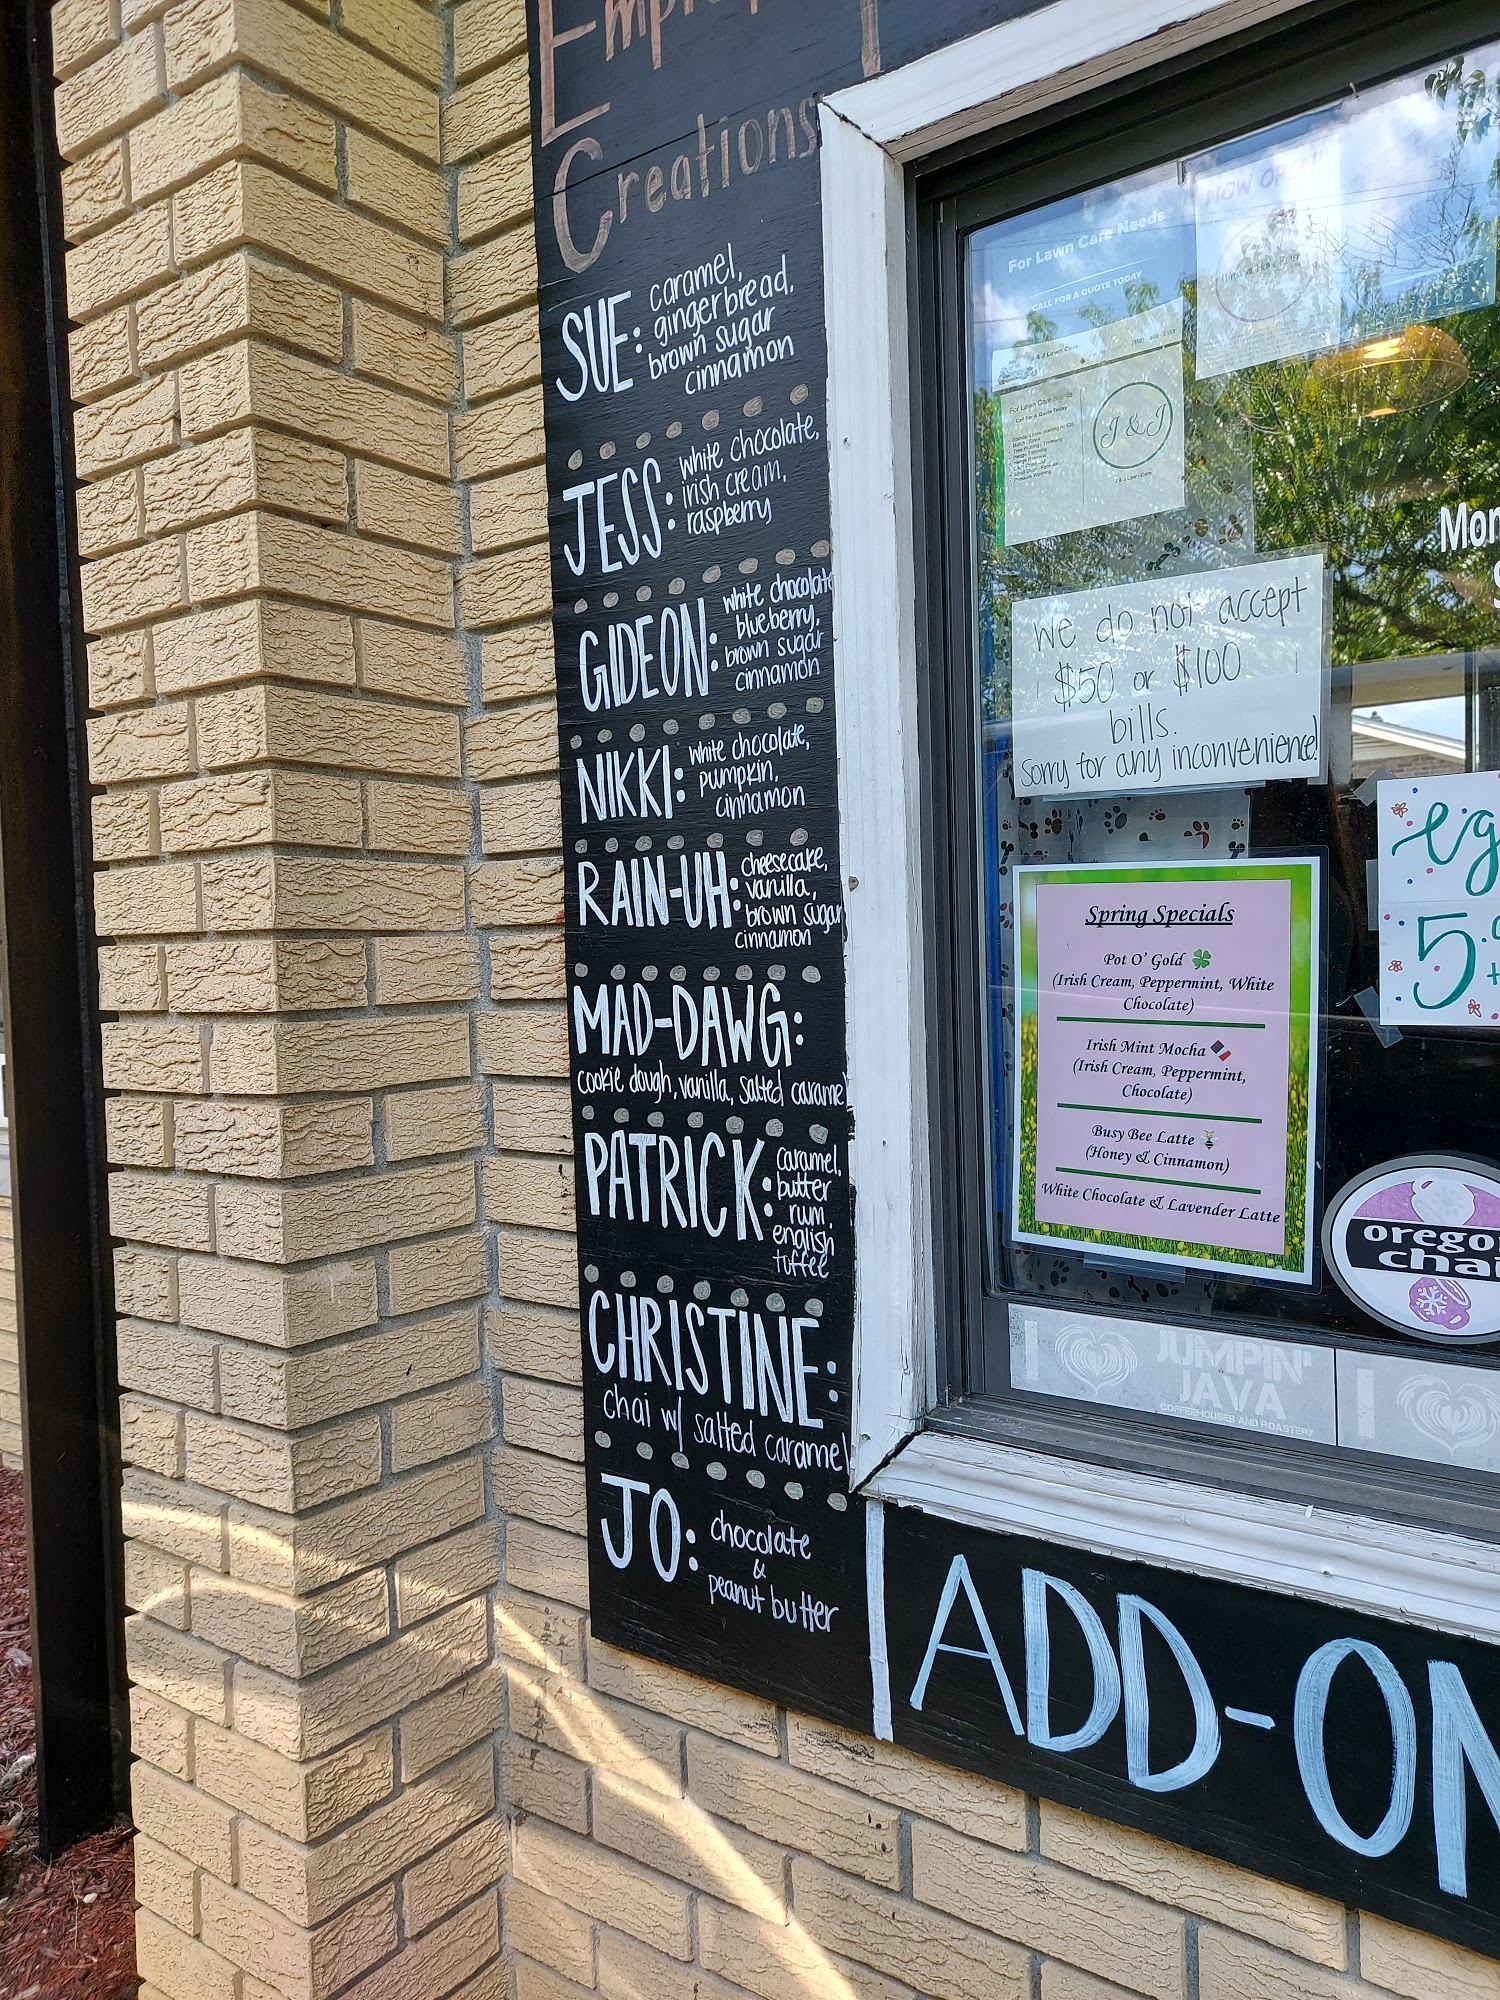 Creations
SUE: caramel,
gingerbread,
brown sugar
cinnamon
JESS: white chocolate,
irish cream,
raspberry
GIDEON: white chocolate
blueberry,
brown sugar
cinnamon
NIKKI: white chocolate,
pumpkin,
cinnamon
RAIN-UH: cheesecake,
vanilla,
brown sugar
cinnamon
MAD-DAWG:
cookie dough, vanilla, salted caramel
PATRICK: caramel,
butter
rum,
english
toffee
CHRISTINE:
chai w/ salted caramel
JO: chocolate
&
peanut butter
ADD-ON
For Lawn Care Needs
CALL FOR A QUOTE TODAY
NOW OPEN
J & J Lawn Care
For Lawn Care Needs
Call For A Quote Today
J & J
J & J Lawn Care
Mon
We do not accept
$50 or $100
bills.
Sorry for any inconvenience!
eg
5
Spring Specials
Pot O' Gold
(Irish Cream, Peppermint, White
Chocolate)
Irish Mint Mocha
(Irish Cream, Peppermint,
Chocolate)
Busy Bee Latte
(Honey & Cinnamon)
White Chocolate & Lavender Latte
oregon
chai
I JUMPIN'
JAVA
COFFEEHOUSES AND ROASTERY
I